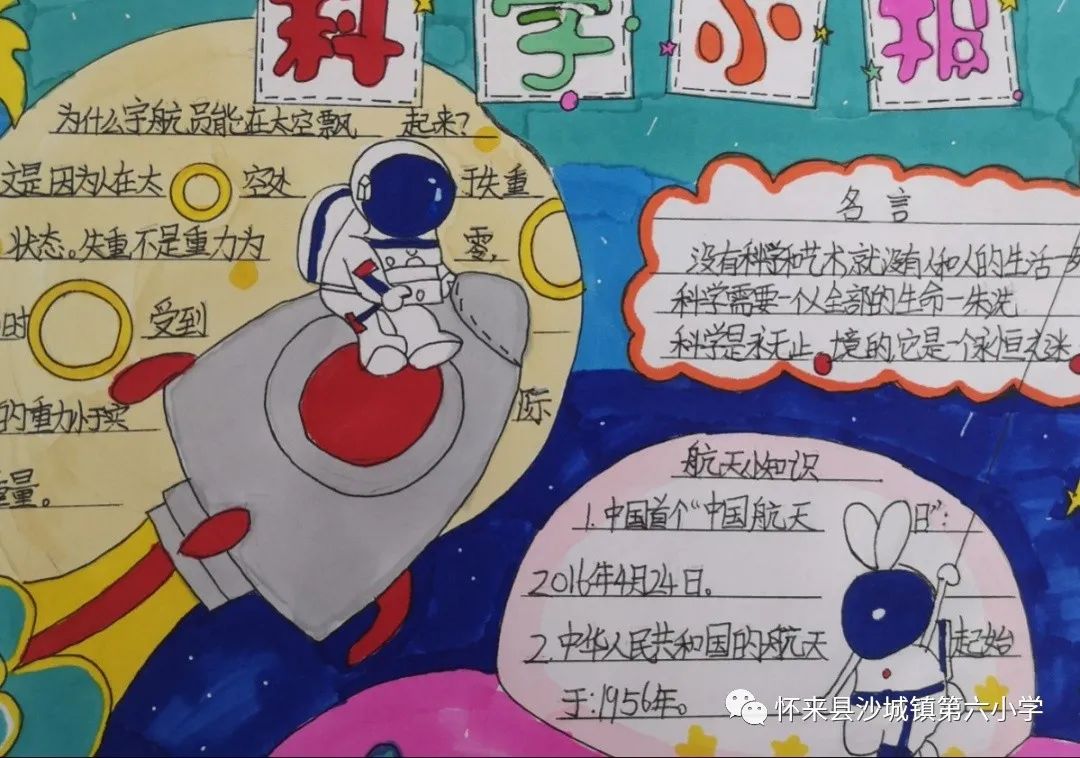 科学小报
为什么宇航员能在太空飘 起来?
这是因为人在太 空处 于失重
状态。失重不是重力为 零,
时 受到
的重力小于实 际
重量。
名言
没有科学和艺术就没有人和人的生活
科学需要一个人全部的生命 朱洗
科学是永无止 境的,它是一个永恒之迷
航天小知识
1.中国首个“中国航天 日”:
2016年4月24日。
2.中华人民共和国的航天 起始
于:1956年。
怀来县沙城镇第六小学